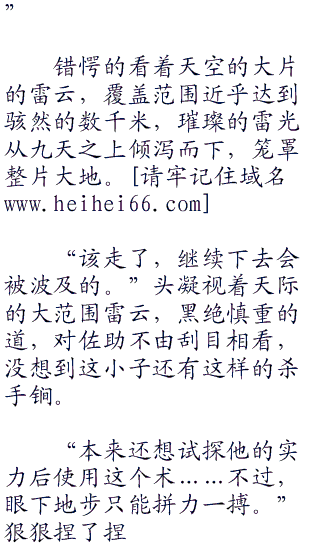 ”
错愕的看着天空的大片
的雷云，覆盖范围近乎达到
骇然的数千米，璀璨的雷光
从九天之上倾泻而下，笼罩
整片大地。[请牢记住域名
www.heihei66.com]
“该走了，继续下去会
被波及的。”头凝视着天际
的大范围雷云，黑绝慎重的
道，对佐助不由刮目相看，
没想到这小子还有这样的杀
手锏。
“本来还想试探他的实
力后使用这个术……不过，
眼下地步只能拼力一搏。”
狠狠捏了捏